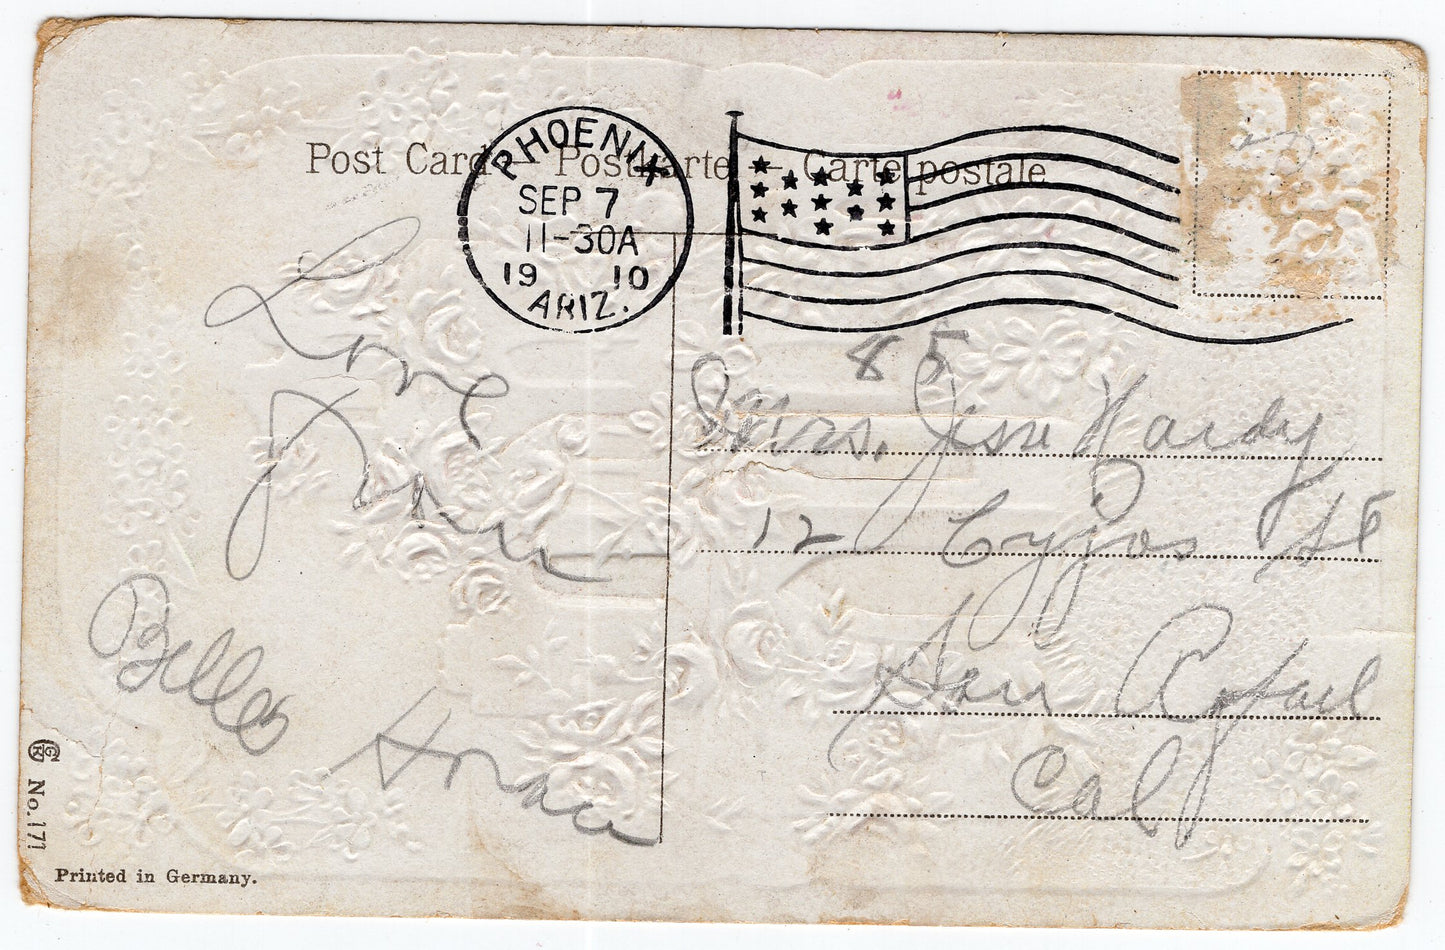 Post Card — Postkarte — Carte postale
PHOENIX
SEP 7
11-30A
19 10
ARIZ.
Love
From
Belle
Horace
85
Mrs. Jesse Hardy
12 St
San Rafael
Cal
GK No. 171
Printed in Germany.